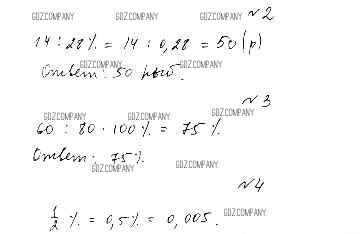 GDZ.COMPANY GDZ.COMPANY GDZ.COMPANY №2
14 : 28% = 14 : 0,28 = 50 (р)
GDZ.COMPANY GDZ.COMPANY
Ответ: 50
№3
GDZ.COMPANY GDZ.COMPANY GDZ.COMPANY
60 : 80 · 100% = 75%
Ответ: 75%.
GDZ.COMPANY GDZ.COMPANY
№4
1/2 % = 0,5% = 0,005. GDZ.COMPANY